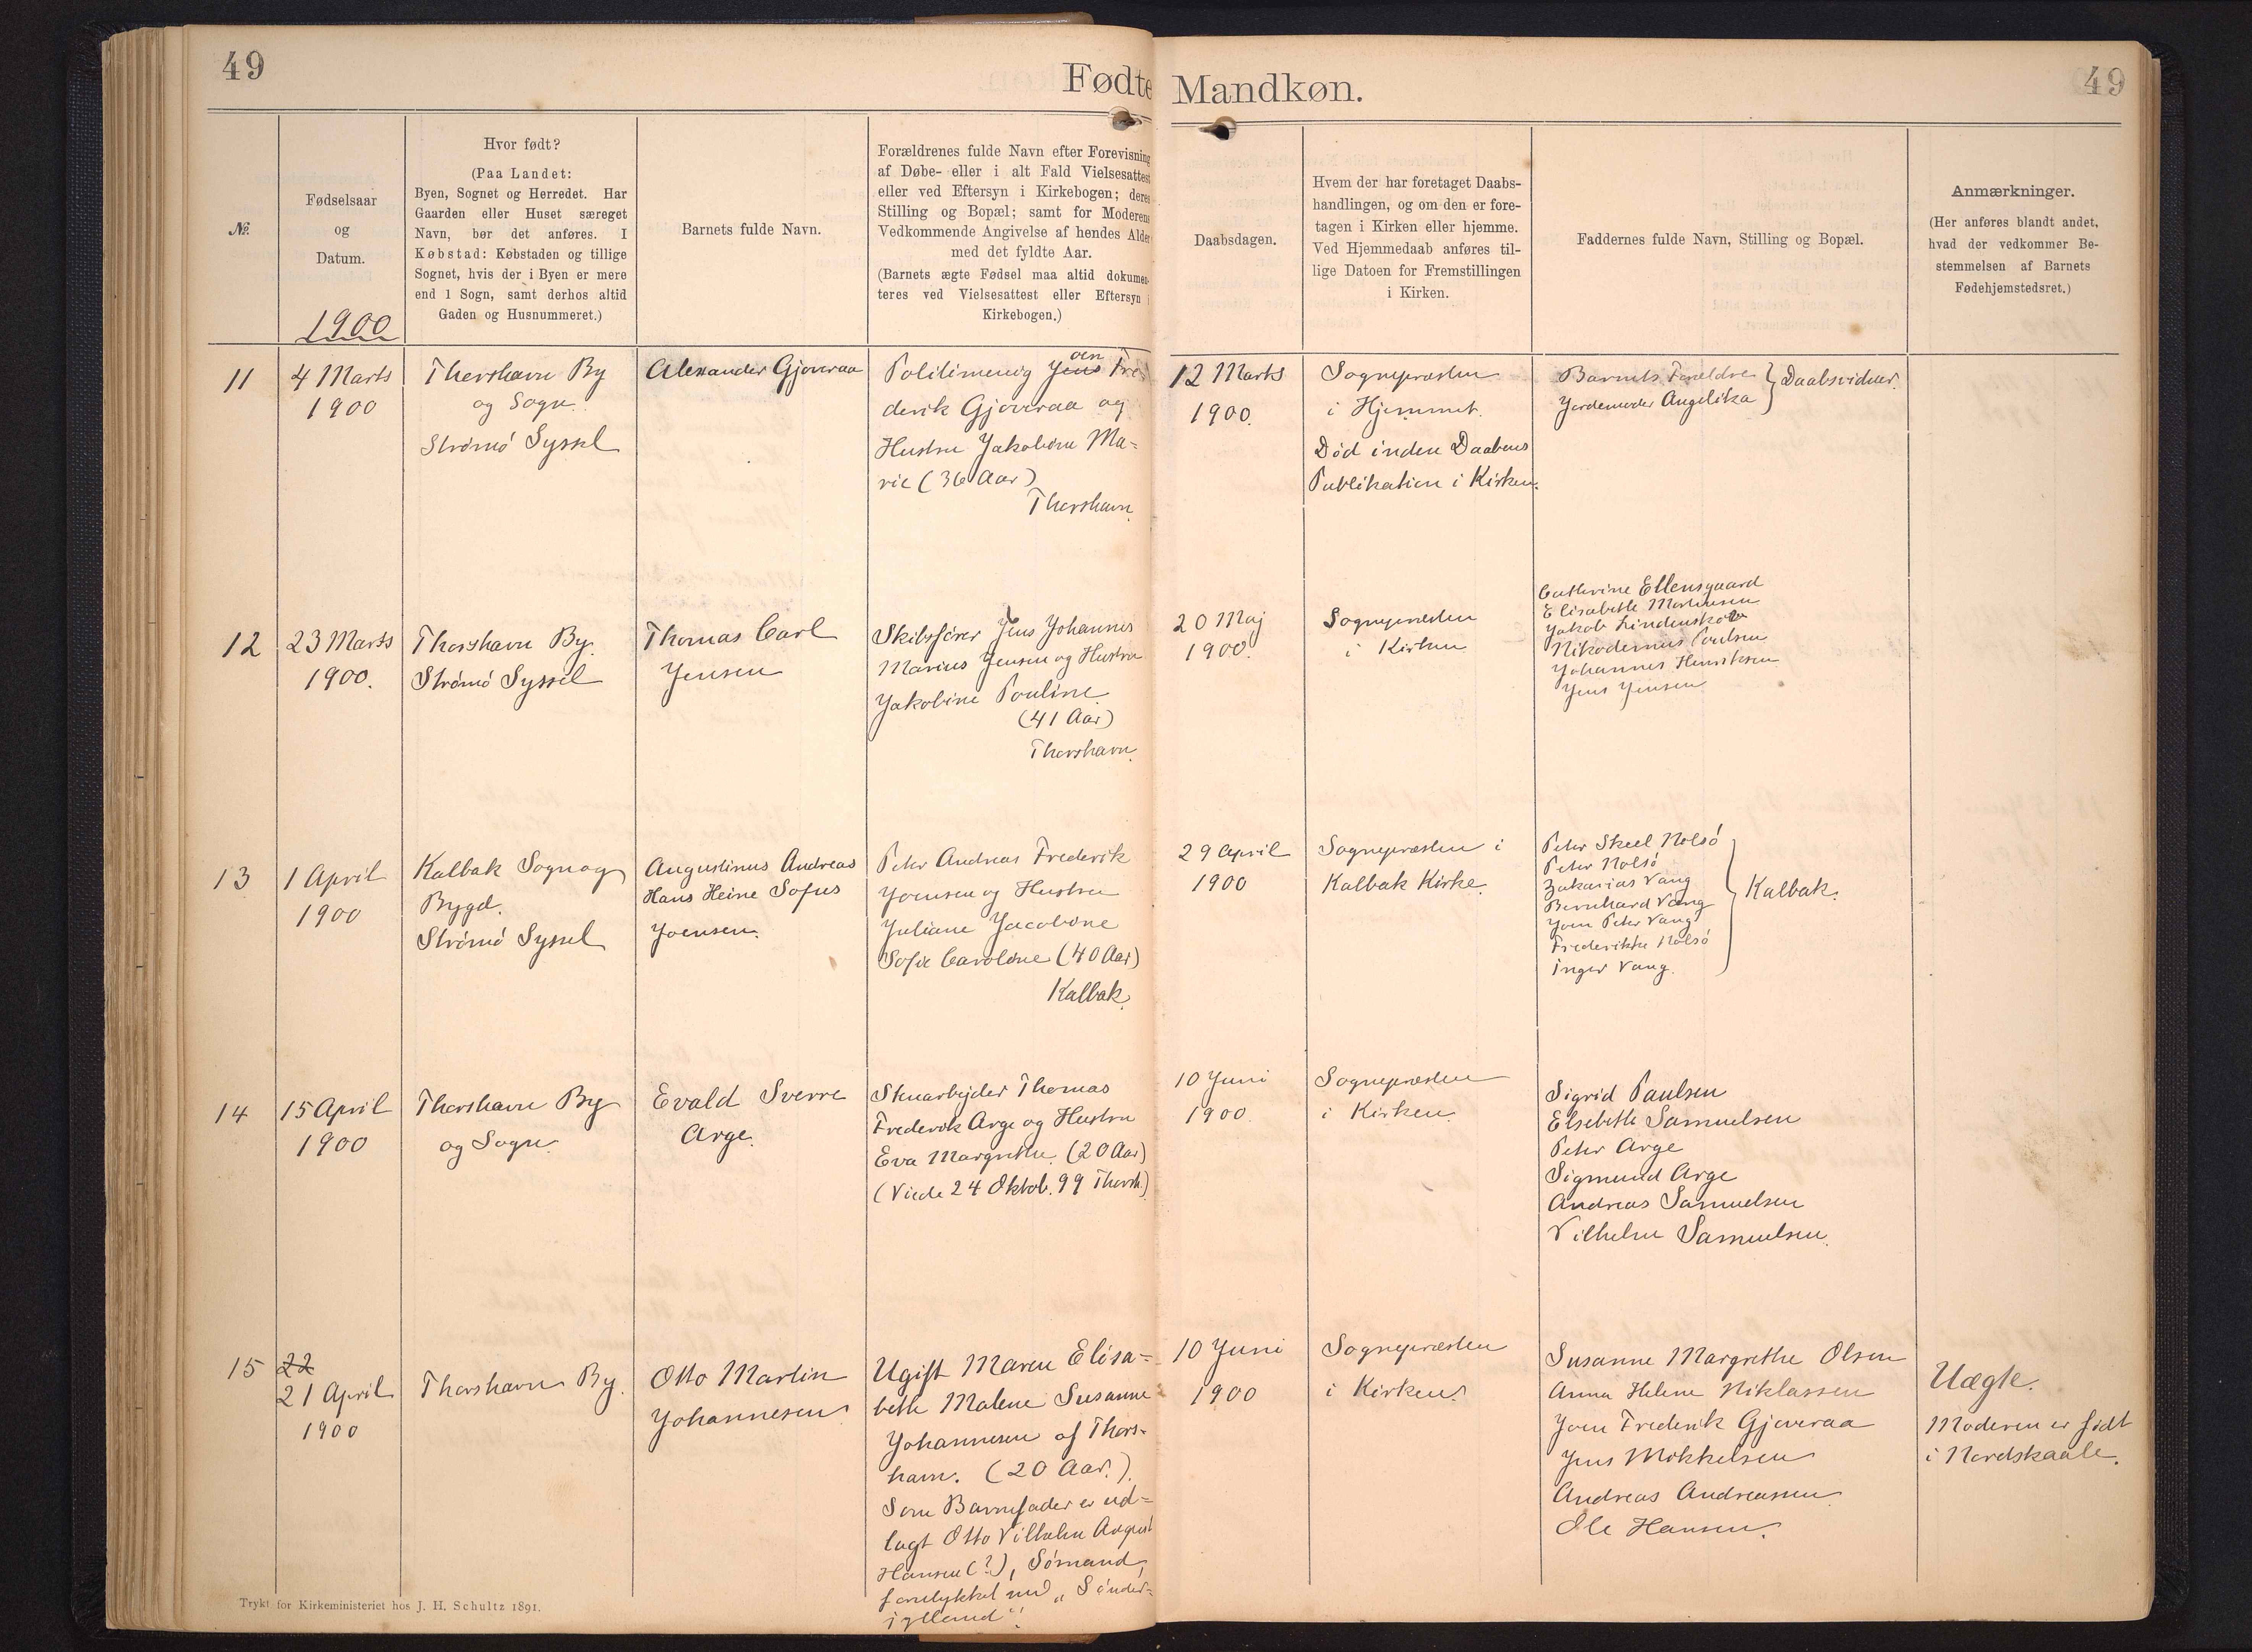 49
Fødte
Mandkøn.
49
№
Fødselsaar
og
Datum.
1900
Hvor født?
(Paa Landet:
Byen, Sognet og Herredet. Har
Gaarden eller Huset særeget
Navn, bør det anføres. I
Købstad: Købstaden og tillige
Sognet, hvis der i Byen er mere
end 1 Sogn, samt derhos altid
Gaden og Husnummeret.)
Barnets fulde Navn.
Forældrenes fulde Navn efter Forevisning
af Døbe- eller i alt Fald Vielsesattest
eller ved Eftersyn i Kirkebogen; deres
Stilling og Bopæl; samt for Moderens
Vedkommende Angivelse af hendes Alder
med det fyldte Aar.
(Barnets ægte Fødsel maa altid dokumen-
teres ved Vielsesattest eller Eftersyn i
Kirkebogen.)
Daabsdagen.
Hvem der har foretaget Daabs-
handlingen, og om den er fore-
tagen i Kirken eller hjemme.
Ved Hjemmedaab anføres til-
lige Datoen for Fremstillingen
i Kirken.
Faddernes fulde Navn, Stilling og Bopæl.
Anmærkninger.
(Her anføres blandt andet,
hvad der vedkommer Be-
stemmelsen af Barnets
Fødehjemstedsret.)
11
4 Marts
1900
Thorshavn By
og Sogn.
Strømø Syssel
Alexander Gjoveraa
Politimenig Jens oen Fre-
derik Gjoveraa og
Hustru Jakobine Ma=
rie (36 Aar)
Thorshavn.
12 Marts
1900.
Sognepræsten
i Hjemmet.
Død inden Daabens
Publikation i Kirken.
Barnets Forældre
Jordemoder Angelika
Daabsvidner.
12
23 Marts
1900.
Thorshavn By.
Strømø Syssel
Thomas Carl
Jensen
Skibsfører Jens Johannes
Marius Jensen og Hustru
Jakobine Pouline
(41 Aar)
Thorshavn.
20 Maj
1900.
Sognepræsten
i Kirken
Cathrine Ellensgaard
Elisabeth Mortensen
Jakob Lindenskov
Nikodemus Poulsen
Johannes Henriksen
Jens Jensen
13
1 April
1900
Kalbak Sogn og
Bygd.
Strømø Syssel
Augustinus Andreas
Hans Heine Sofus
Joensen.
Peter Andreas Frederik
Joensen og Hustru
Juliane Jacobine
Sofie Caroline (40 Aar)
Kalbak.
29 April
1900
Sognepræsten i
Kalbak Kirke.
Peter Skeel Nolsø
Peter Nolsø
Zakarias Vang
Bernhard Vang
Joen Peter Vang
Frederikke Nolsø
Inger Vang.
Kalbak.
14
15 April
1900
Thorshavn By
og Sogn.
Evald Sverre
Arge.
Stenarbejder Thomas
Frederik Arge og Hustru
Eva Margrethe. (20 Aar)
(Viede 24 Oktob. 99 Thorsh.)
10 Juni
1900.
Sognepræsten
i Kirken
Sigrid Paulsen
Elsebeth Samuelsen
Peter Arge
Sigmund Arge
Andreas Samuelsen
Vilhelm Samuelsen.
15
22
21 April
1900
Thorshavn By.
Otto Martin
Johannesen
Ugift Maren Elisa=
beth Malene Susanne
Johannesen af Thors-
havn. (20 Aar.).
Som Barnefader er ud=
lagt Otto Vilhelm August
Hansen (?), Sømand,
forulykket med „Sønder=
jylland".
10 Juni
1900
Sognepræsten
i Kirken
Susanne Margrethe Olsen
Anna Helene Niklassen
Joen Frederik Gjoveraa
Jens Mikkelsen
Andreas Andreasen
Ole Hansen.
Uægte.
Moderen er født
i Nordskaale.
Trykt for Kirkeministeriet hos J. H. Schultz 1891.